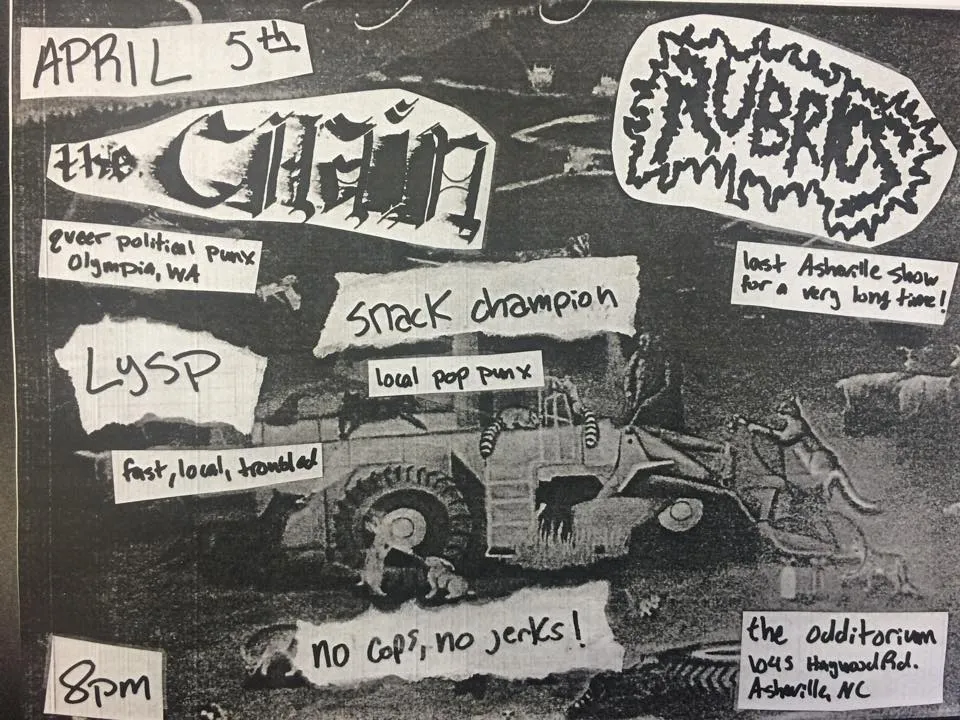 APRIL 5th
the CHain
queer political punx
Olympia, WA
RUBRICS
last Asheville show
for a very long time!
snack champion
local pop punx
LYSP
fast, local, troubled
no cops, no jerks!
8pm
the odditorium
1045 Haywood Rd.
Asheville, NC